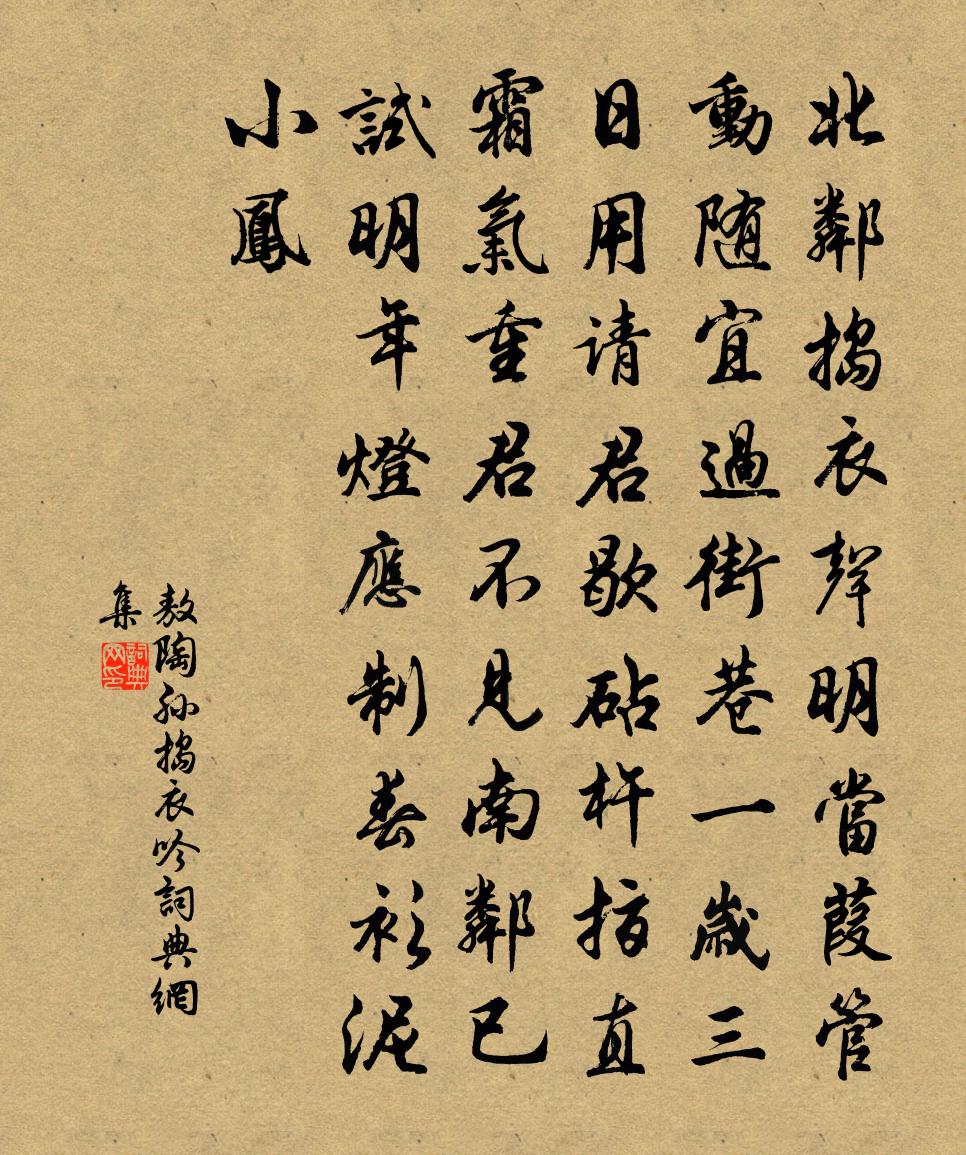 北鄰搗衣聲明當葭管
動随宜過街巷一歲三
日用请君歇砧杵指直
霜氣重君不見南鄰已
試明年燈應制春衫泥
小鳳
敖陶孙搗衣吟詞典網
集
詞典网印